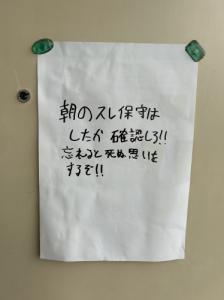 朝のスレ保守は
したか 確認しろ!!
忘れると死ぬ思いを
するぞ!!